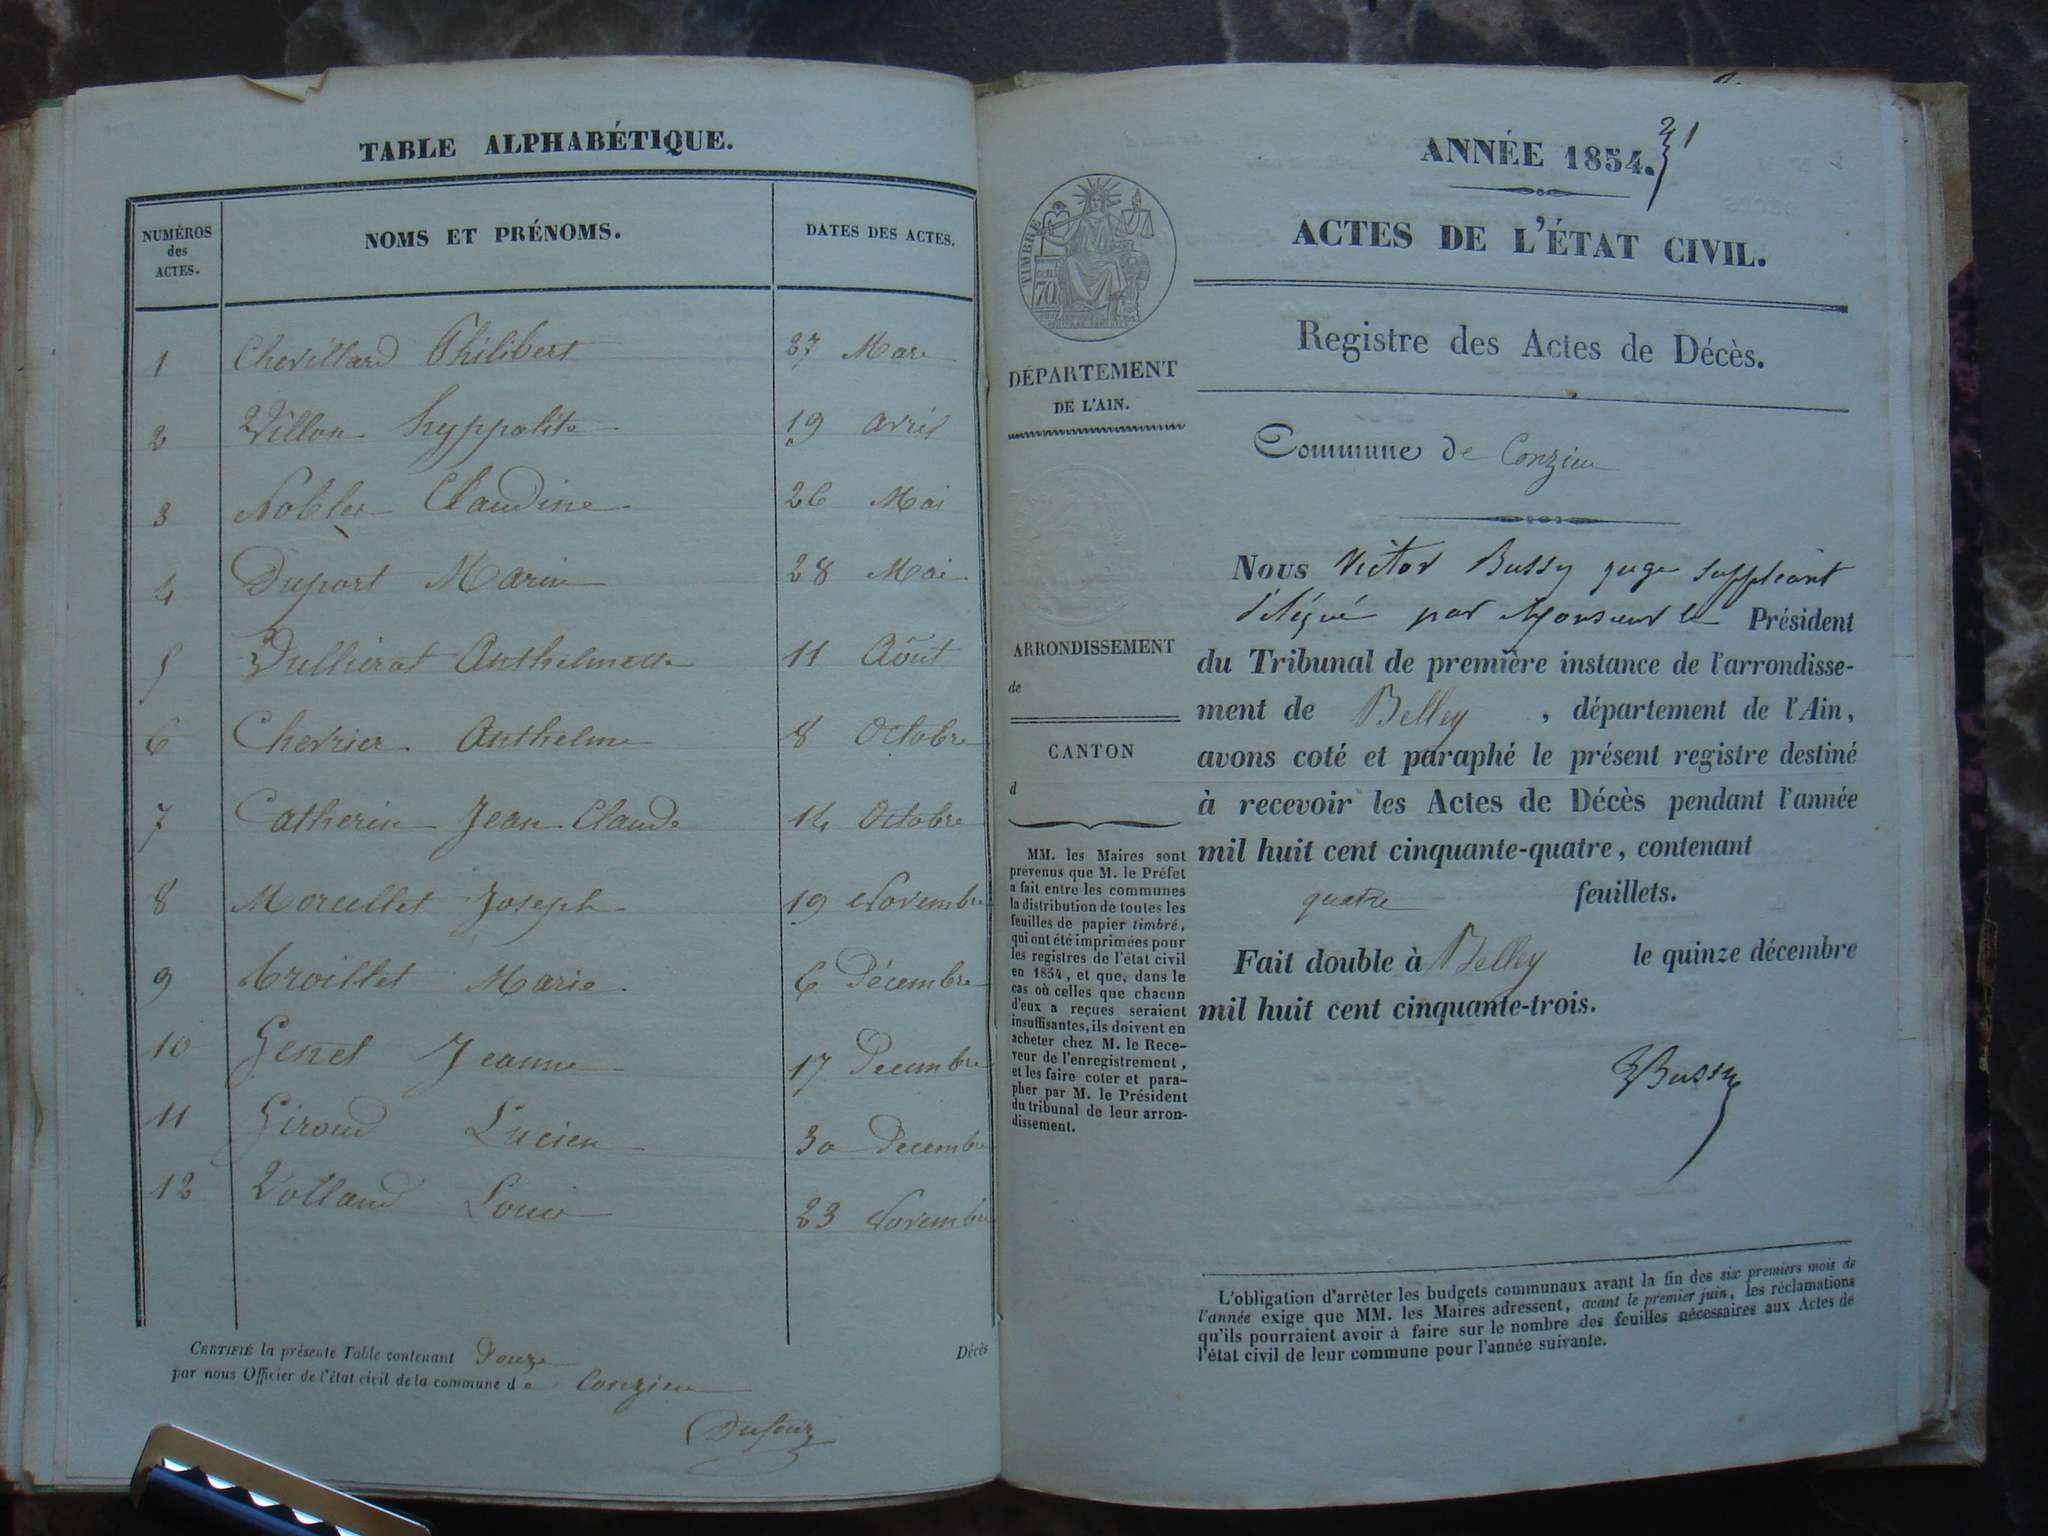 TABLE ALPHABÉTIQUE.
NUMÉROS
des
ACTES.
NOMS ET PRÉNOMS.
DATES DES ACTES.
1 Chevillard Philibert 27 Mars
2 Villon hyppolite 19 avril
3 Nobles Claudine 26 Mai
4 Duport Marie 28 Mai
5 Anthelmette 11 Août
6 Chevrier Anthelme 8 Octobre
7 Catherin Jean Claude 14 Octobre
8 Marcellet Joseph 19 Novembre
9 Troillet Marie 6 Décembre
10 Genet Jeanne 17 Decembre
11 Giroud Lucien 30 Decembre
12 Volland Louis 23 Novembre
CERTIFIÉ la présente Table contenant Douze Décès
par nous Officier de l'état civil de la commune de Conzieu
Dufour
ANNÉE 1854.
1
ACTES DE L'ÉTAT CIVIL.
Registre des Actes de Décès.
TIMBRE
70
DÉPARTEMENT
DE L'AIN.
ARRONDISSEMENT
de
CANTON
d
MM. les Maires sont
prévenus que M. le Préfet
a fait entre les communes
la distribution de toutes les
feuilles de papier timbré,
qui ont été imprimées pour
les registres de l'état civil
en 1854, et que, dans le
cas où celles que chacun
d'eux a reçues seraient
insuffisantes, ils doivent en
acheter chez M. le Rece-
veur de l'enregistrement,
et les faire coter et para-
pher par M. le Président
du tribunal de leur arron-
dissement.
Commune de Conzieu
Nous Victor Bussy juge suppléant
délégué par Monsieur le Président
du Tribunal de première instance de l'arrondisse-
ment de Belley, département de l'Ain,
avons coté et paraphé le présent registre destiné
à recevoir les Actes de Décès pendant l'année
mil huit cent cinquante-quatre, contenant
quatre feuillets.
Fait double à Belley le quinze décembre
mil huit cent cinquante-trois.
VBussy
L'obligation d'arrêter les budgets communaux avant la fin des six premiers mois de
l'année exige que MM. les Maires adressent, avant le premier juin, les réclamations
qu'ils pourraient avoir à faire sur le nombre des feuilles nécessaires aux Actes de
l'état civil de leur commune pour l'année suivante.